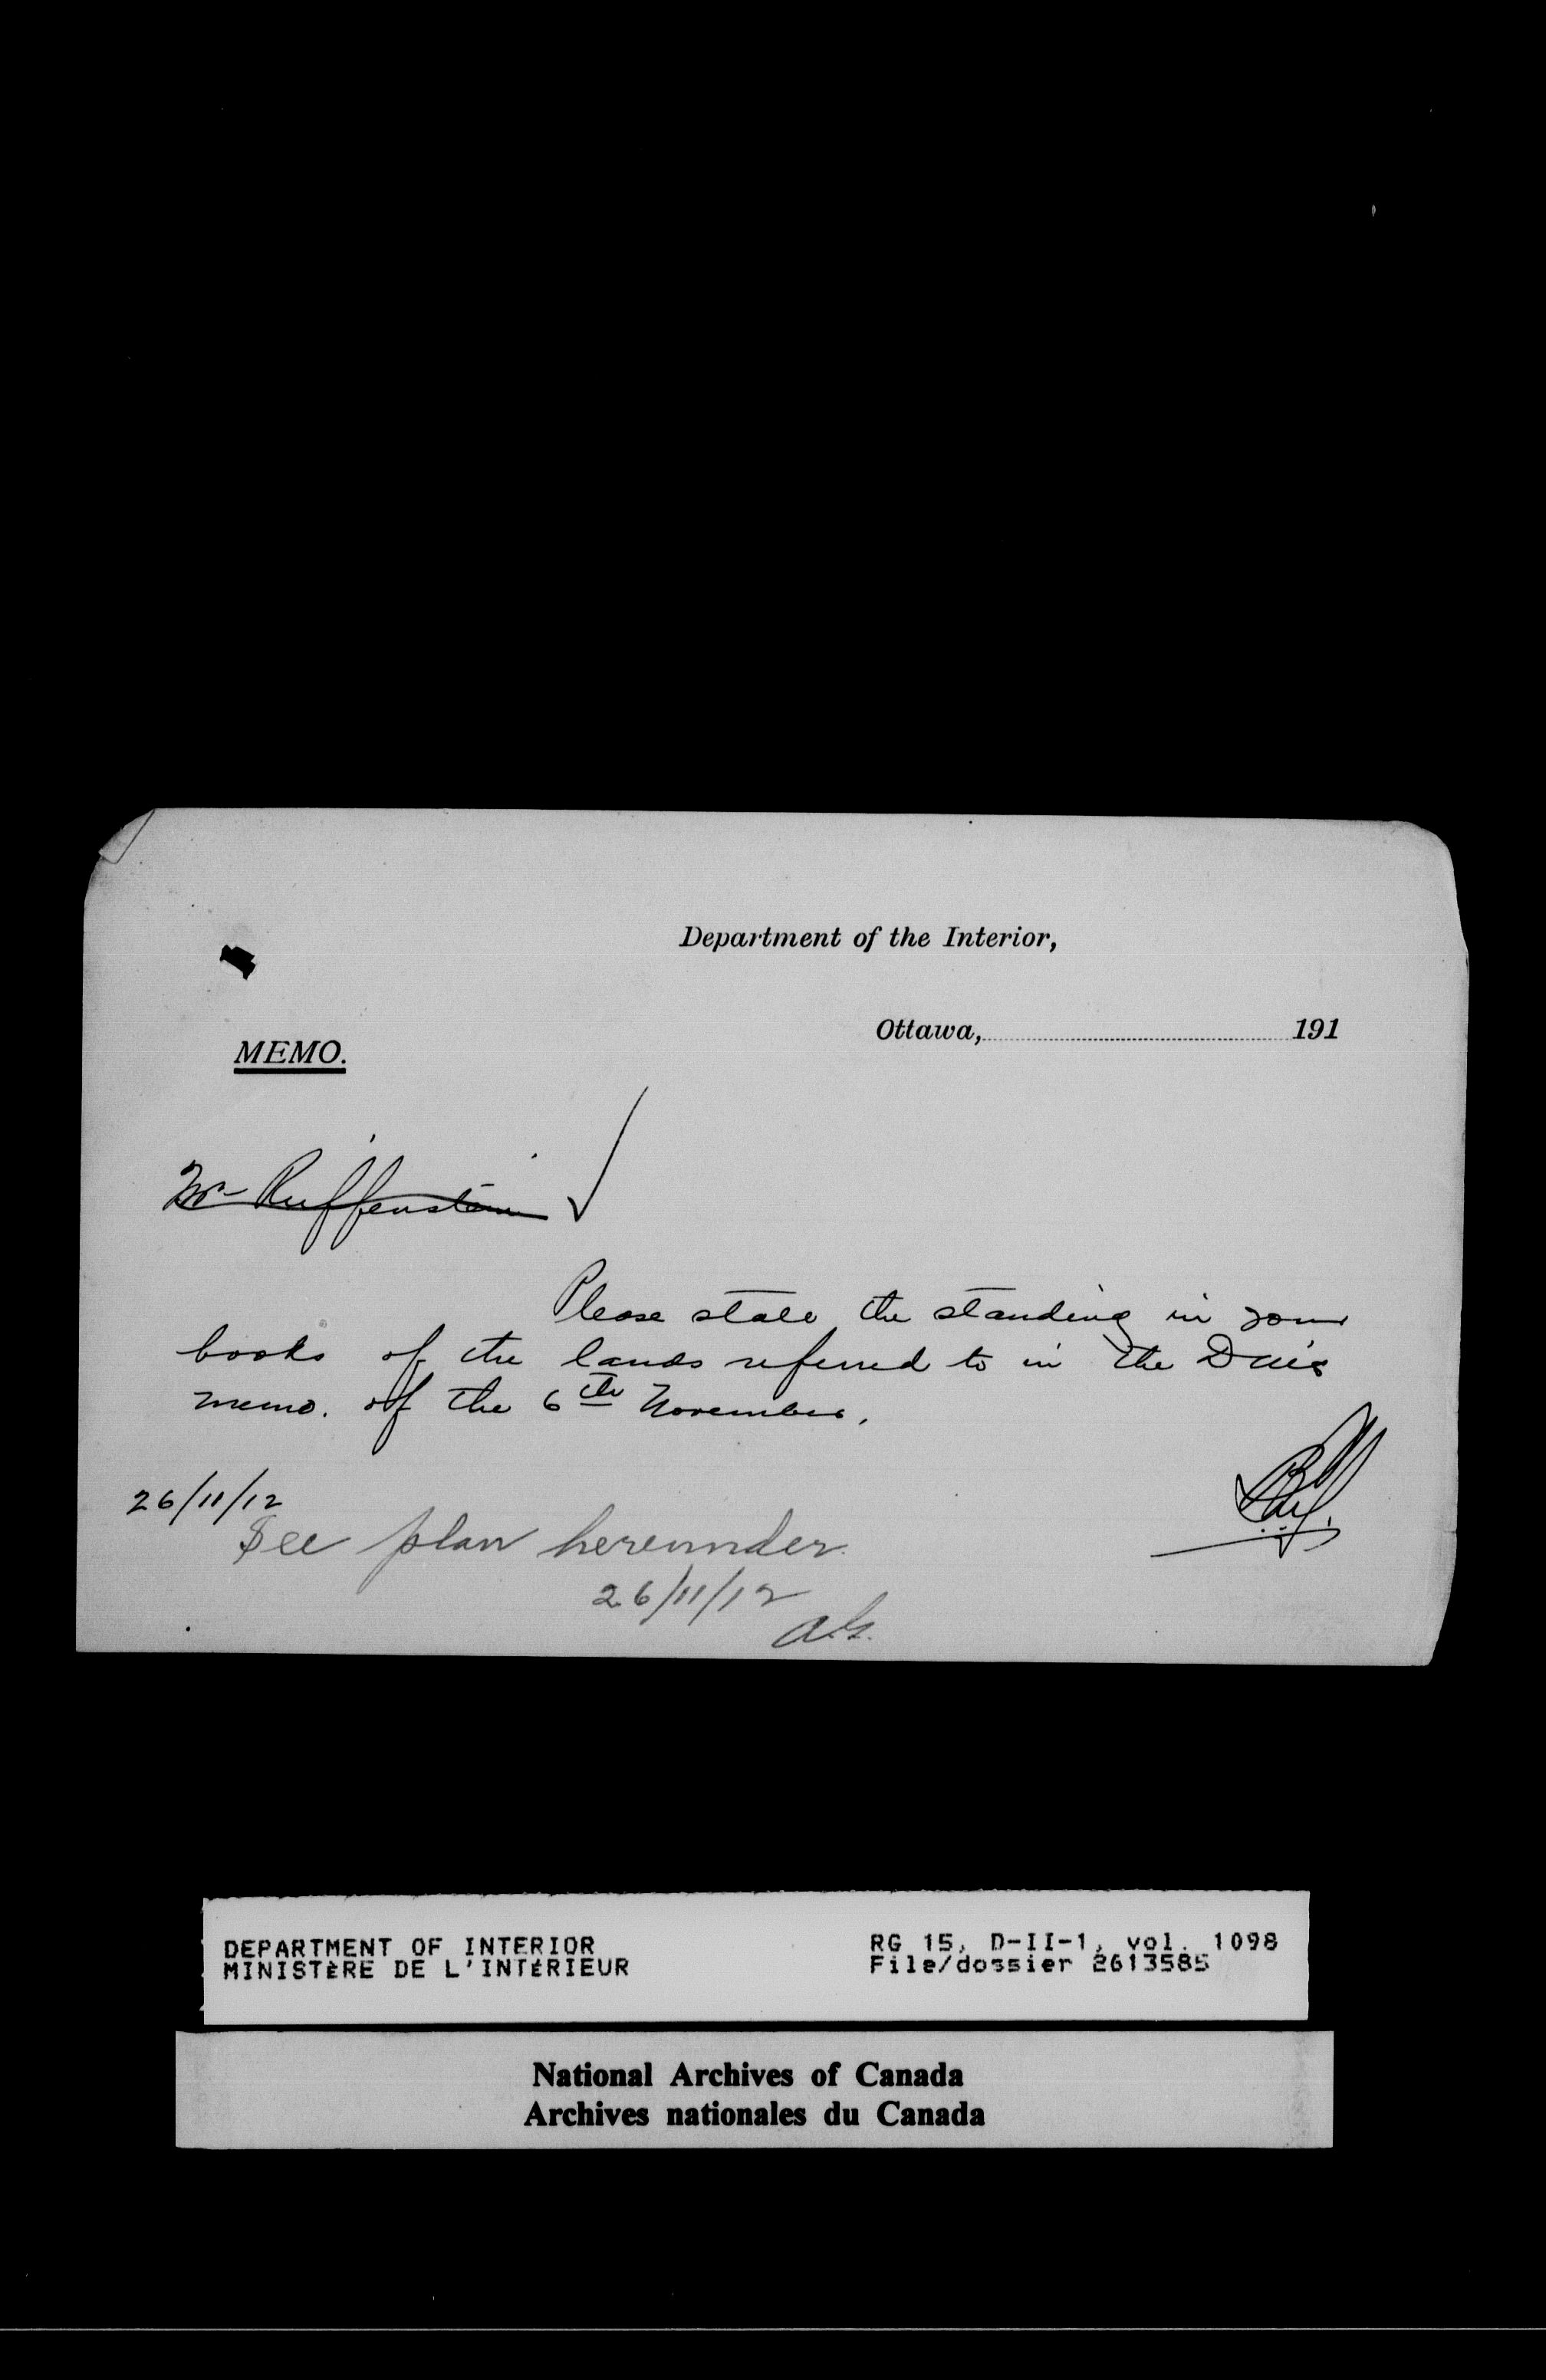 Department of the Interior,
Ottawa, 191
MEMO.
Mr Ruffenstein
Please state the standing in your
books of the lands referred to in the
memo. of the 6th November.
26/11/12
See plan hereunder.
26/11/12
DEPARTMENT OF INTERIOR
MINISTÈRE DE L'INTÉRIEUR
RG 15, D-II-1, vol. 1098
File/dossier 2613585
National Archives of Canada
Archives nationales du Canada